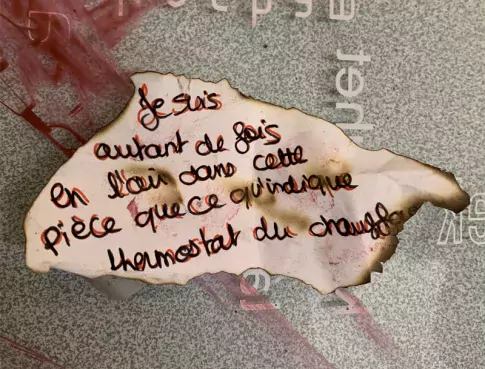 Je suis
autant de fois
en l'air dans cette
pièce que ce qu'indique
thermostat du chauffa